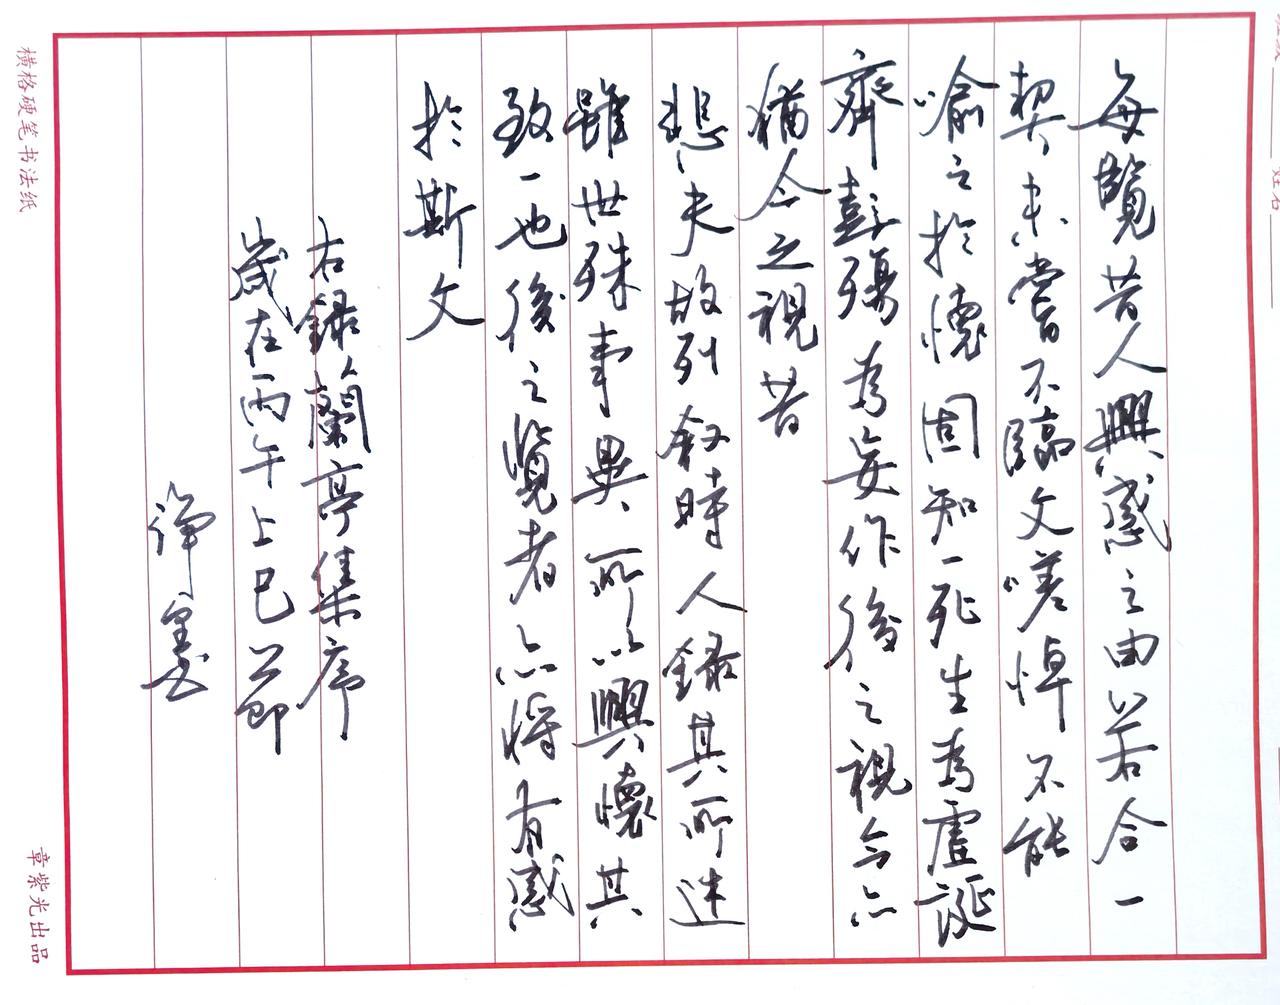 每覽昔人興感之由若合一
契未嘗不臨文嗟悼不能
喻之於懷固知一死生為虛誕
齊彭殤為妄作後之視今亦
猶今之視昔
悲夫故列叙時人錄其所述
雖世殊事異所以興懷其
致一也後之覽者亦將有感
於斯文
右錄蘭亭集序
歲在丙午上巳節
諍墨
横格硬笔书法纸
章紫光出品
姓名